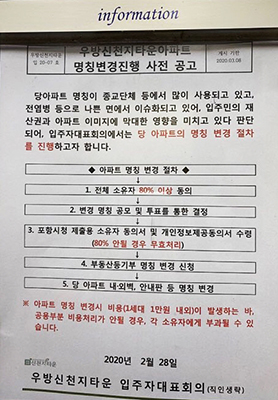 information
우방신천지타운아파트
일 20-07 호
우방신천지타운아파트
명칭변경진행 사전 공고
게시 기한
2020.03.08
당아파트 명칭이 종교단체 등에서 많이 사용되고 있고,
전염병 등으로 나쁜 면에서 이슈화되고 있어, 입주민의 재
산권과 아파트 이미지에 막대한 영향을 미치고 있다 판단
되어, 입주자대표회의에서는 당 아파트의 명칭 변경 절차
를 진행하고자 합니다.
◆ 아파트 명칭 변경 절차 ◆
1. 전체 소유자 80% 이상 동의
2. 변경 명칭 공모 및 투표를 통한 결정
3. 포항시청 제출용 소유자 동의서 및 개인정보제공동의서 수령
(80% 안될 경우 무효처리)
4. 부동산등기부 명칭 변경 신청
5. 당 아파트 내·외벽, 안내판 등 명칭 변경
※ 아파트 명칭 변경시 비용(1세대 1만원 내외)이 발생하는 바,
공용부분 비용처리가 안될 경우, 각 소유자에게 부과될 수 있
습니다.
2020년 2월 28일
우방신천지타운 입주자대표회의(직인생략)